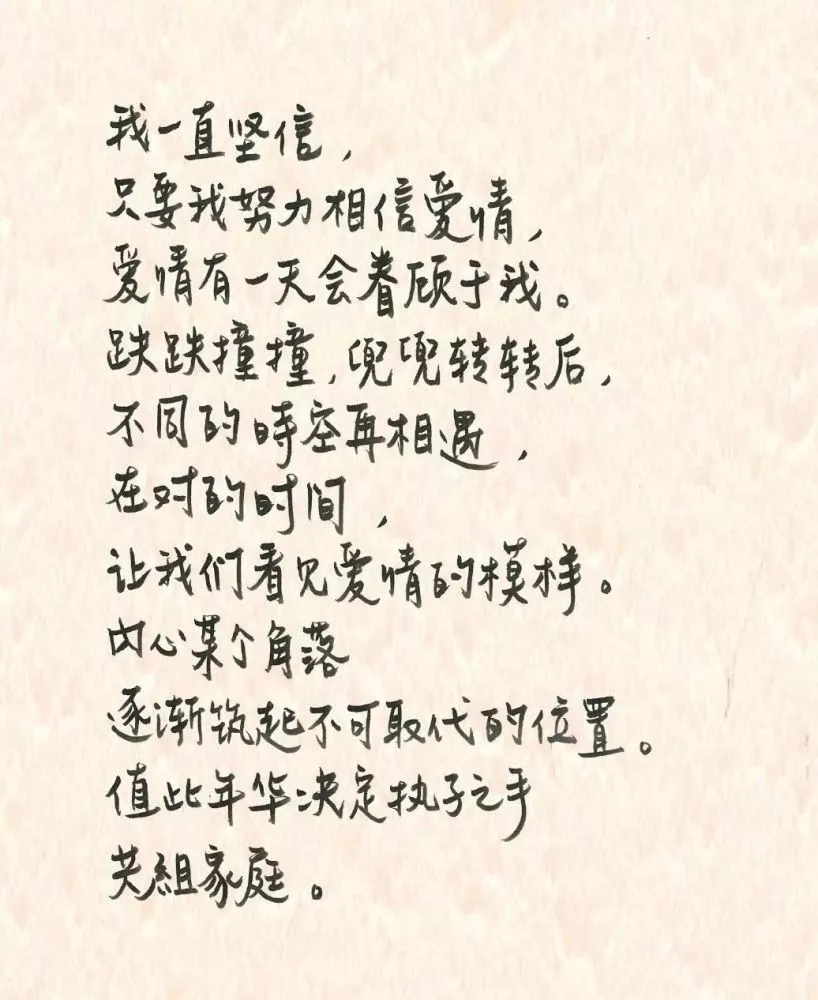 我一直坚信，
只要我努力相信爱情，
爱情有一天会眷顾于我。
跌跌撞撞，兜兜转转后，
不同的時空再相遇，
在对的时间，
让我们看见爱情的模样。
内心某个角落
逐渐筑起不可取代的位置。
值此年华决定执子之手
共組家庭。